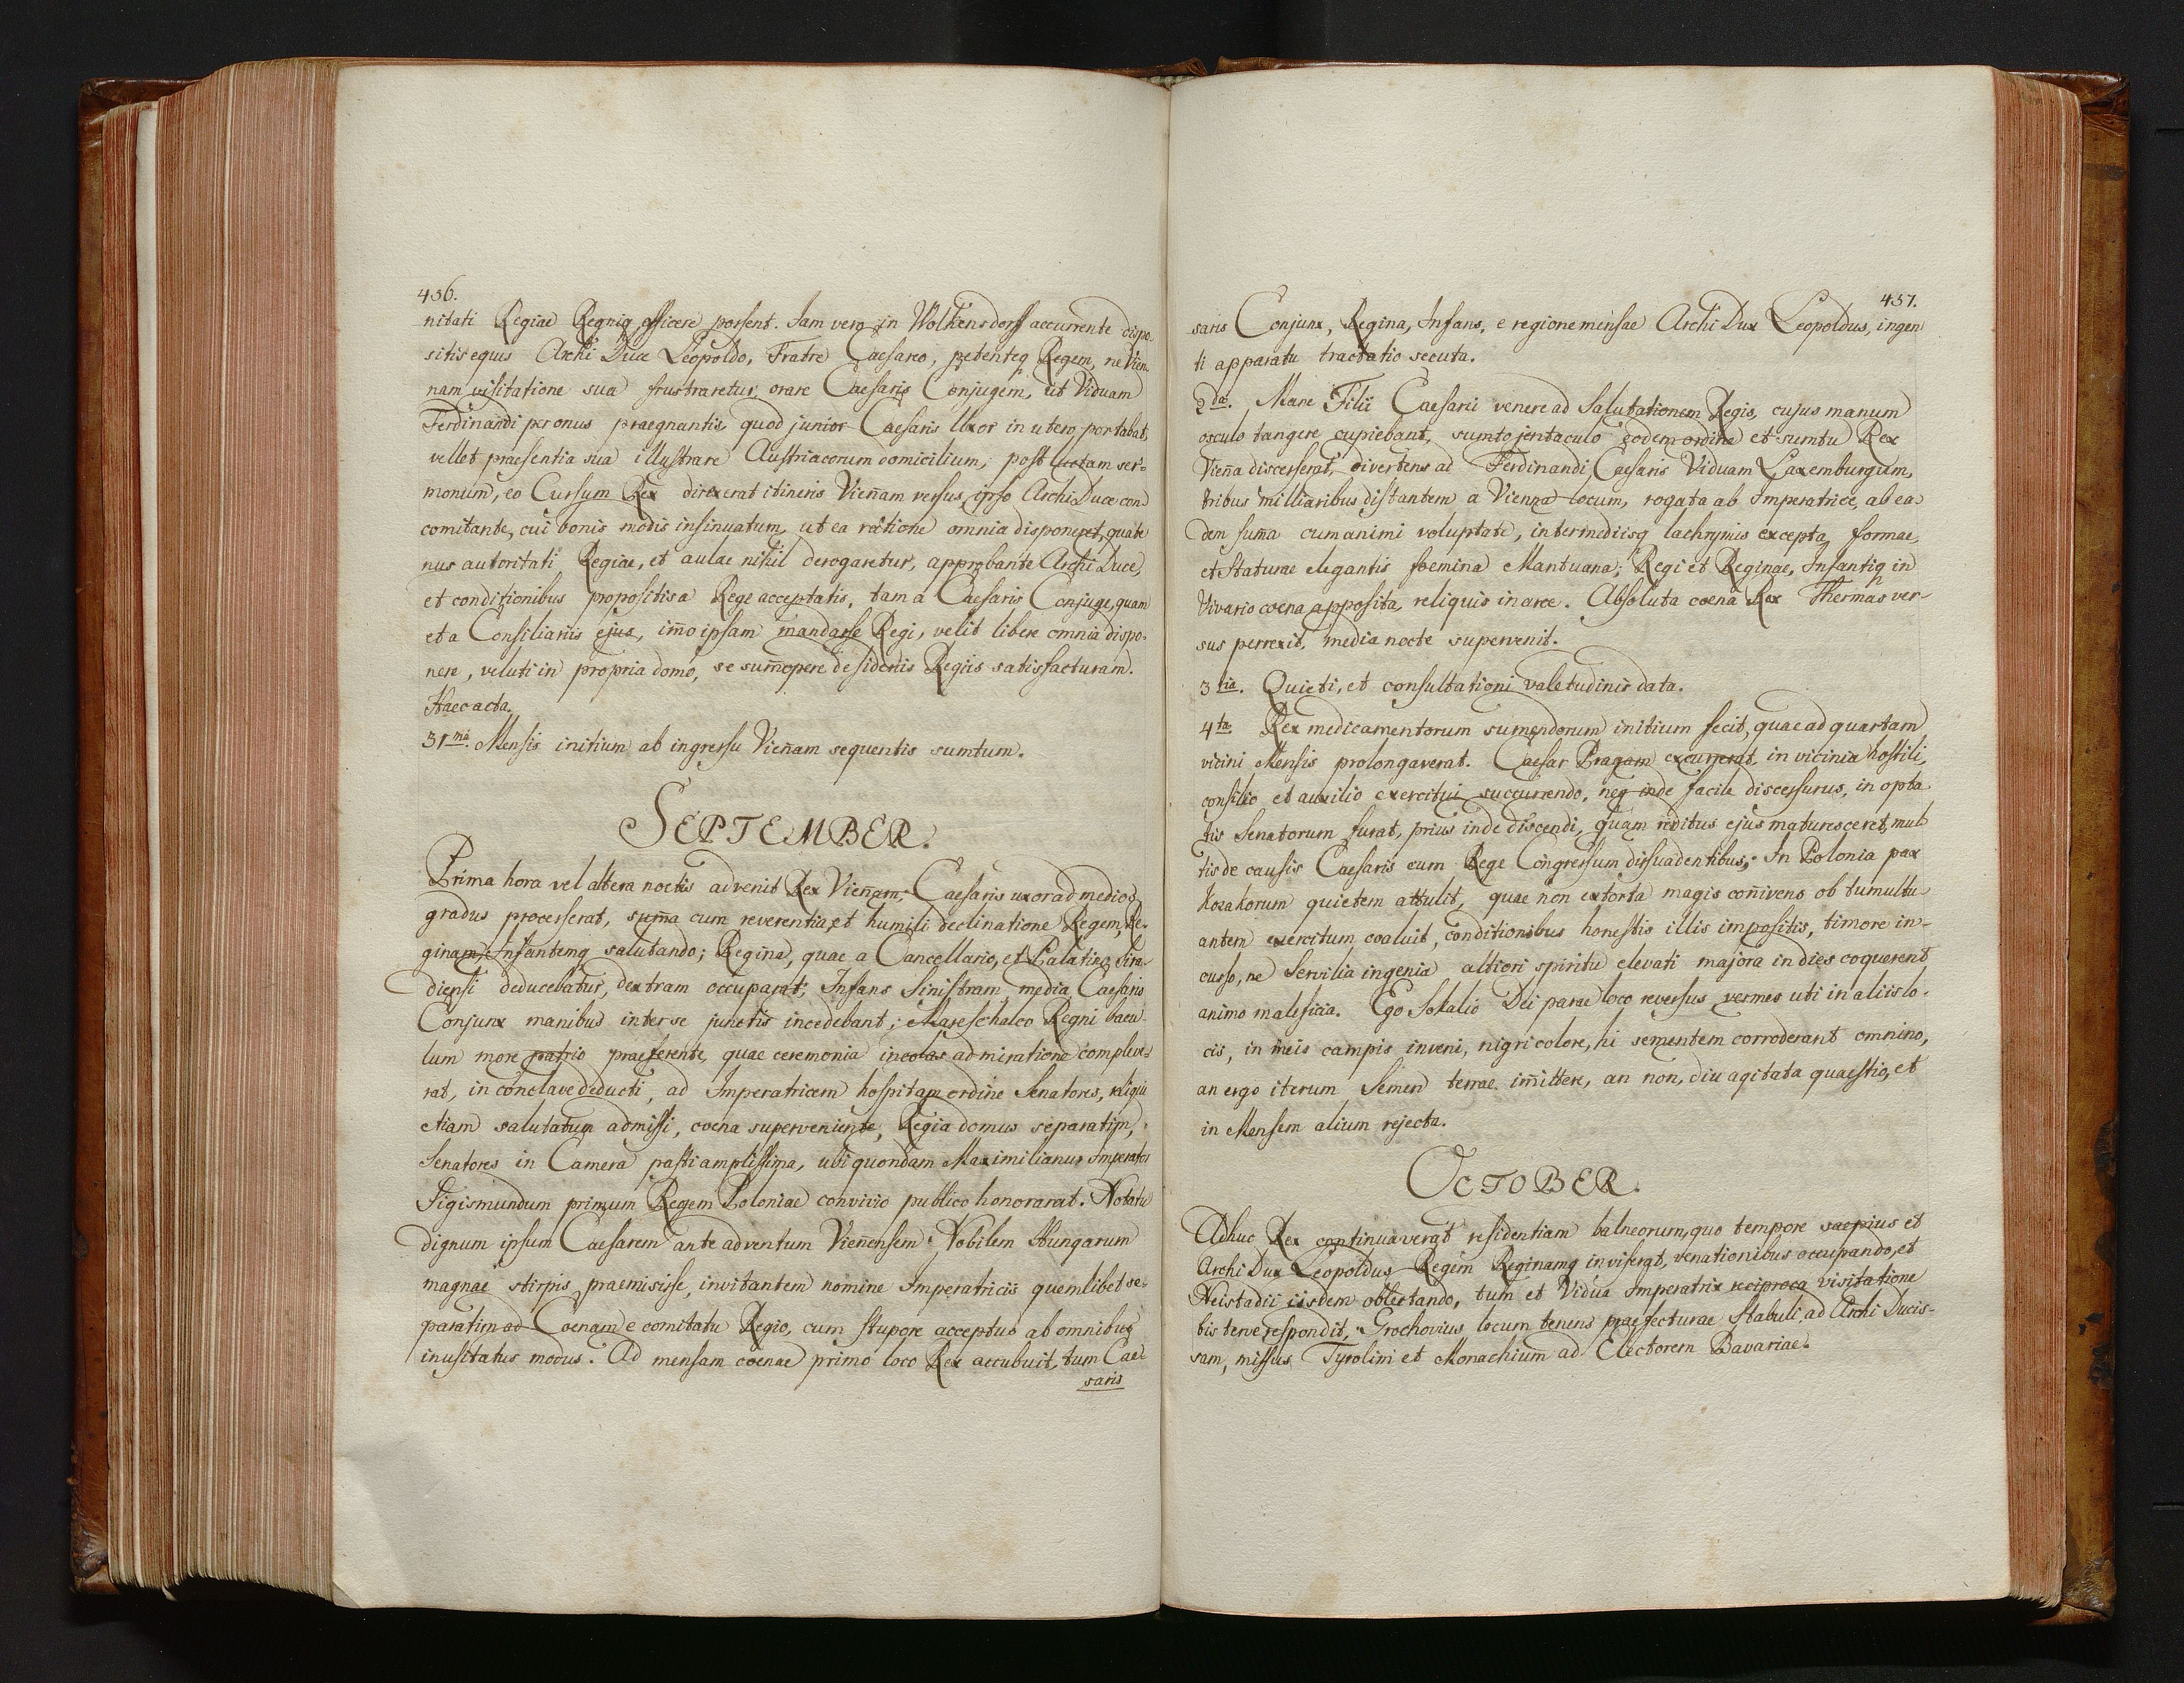 436.
nitati Regiae Regniq officere possent. Jam vero in Wolkensdorff accurrente dispo-
sitis equis Archi Duce Leopoldo, Fratre Caesareo, petenteq Regem, ne Vien-
nam visitatione sua frustraretur, orare Caesaris Conjugem, ut Viduam
Ferdinandi per onus praegnantis, quod junior Caesaris Uxor in utero portabat,
vellet praesentia sua illustrare Austriacorum domicilium, post luctam ser-
monum, eo Cursum Rex direxerat itineris Vieñam versus, ipso Archi Duce con
comitante, cui bonis modis insinuatum, ut ea ratione omnia disponeret, quate
nus autoritati Regiae, et aulae nihil derogaretur, approbante Archi Duce,
et conditionibus propositis a Rege acceptatis, tam a Caesaris Conjuge, quam
et a Consiliariis ejus, im̃o ipsam mandasse Regi, velit libere omnia dispo-
nere, veluti in propria domo, se sum̃opere desideriis Regiis satisfacturam.
Haec acta.
31ma. Mensis initium ab ingressu Vieñam sequentis sumtum.
SEPTEMBER.
Prima hora vel altera noctis advenit Rex Vieñam; Caesaris uxor ad medios
gradus processerat, sum̃a cum reverentia, et humili declinatione Regem, Re-
ginam, Infantemq salutando; Regina, quae a Cancellario, et Palatino Sira-
diensi deducebatur, dextram occuparat; Infans Sinistram, media Caesaris
Conjunx manibus inter se junctis incedebant; Mareschalco Regni bacu-
lum more patrio praeferente, quae ceremonia incolas admiratione compleve-
rat, in conclave deducti, ad Imperatricem hospitam ordine Senatores, reliqui
etiam salutatum admissi, coena superveniente, Regia domus separatim,
Senatores in Camera pasti amplissima, ubi quondam Maximilianus Imperator
Sigismundum primum Regem Poloniae convivio publico honorarat. Notatu
dignum ipsum Caesarem ante adventum Vieñensem Nobilem Hungarum
magnae stirpis praemisisse, invitantem nomine Imperatricis quemlibet se-
paratim ad Coenam e comitatu Regio, cum stupore acceptus ab omnibus
inusitatus modus. Ad mensam coenae primo loco Rex accubuit, tum Cae-
saris
437.
saris Conjunx, Regina, Infans, e regione mensae Archi Dux Leopoldus, ingen
ti apparatu tractatio secuta.
2da. Mane Filii Caesarii venere ad Salutationem Regis, cujus manum
osculo tangere cupiebant, sumto jentaculo eodem ordine et sumtu Rex
Vieña discesserat, divertens ad Ferdinandi Caesaris Viduam Laxemburgum,
tribus milliaribus distantem a Vienna locum, rogata ab Imperatrice, ab ea-
dem sum̃a cum animi voluptate, intermediisq lachrymis excepta, formae,
et Staturae elegantis foemina Mantuana; Regi et Reginae, Infantiq in
Vivario coena apposita, reliquis in arce. Absoluta coena Rex Thermas ver-
sus perrexit, media nocte supervenit.
3tia. Quieti, et consultationi valetudinis data.
4ta. Rex medicamentorum sumendorum initium fecit, quae ad quartam
vicini Mensis prolongaverat. Caesar Pragam excurrerat, in vicinia hostili,
consilio et auxilio exercitui succurrendo, neq inde facile discessurus, in opta-
tis Senatorum fuat, prius inde discendi, quam reditus ejus maturesceret, mul
tis de causis Caesaris cum Rege Congressum dissuadentibus; In Polonia pax
Kozakorum quietem attulit, quae non extorta magis coñivens ob tumultu-
antem exercitum coaluit, conditionibus honestis illis impositis, timore in-
cusso, ne Servilia ingenia altiori spiritu elevati majora in dies coquerent
animo maleficia. Ego Sokalio Dei parae loco reversus vermes uti in aliis lo-
cis, in meis campis inveni, nigri colore, hi sementem corroderant omnino,
an ergo iterum Semen terrae im̃ittere, an non, diu agitata quaestio, et
in Mensem alium rejecta.
OCTOBER.
Adhuc Rex continuaverat residentiam balneorum, quo tempore saepius et
Archi Dux Leopoldus Regem Reginamq inviserat, venationibus occupando, et
Neistadii iisdem oblectando, tum et Vidua Imperatrix reciproca visitatione
bis terve respondit, Grochovius locum tenens praefecturae Stabuli, ad Archi Ducis-
sam, missus Tyrolim et Monachium ad Electorem Bavariae.